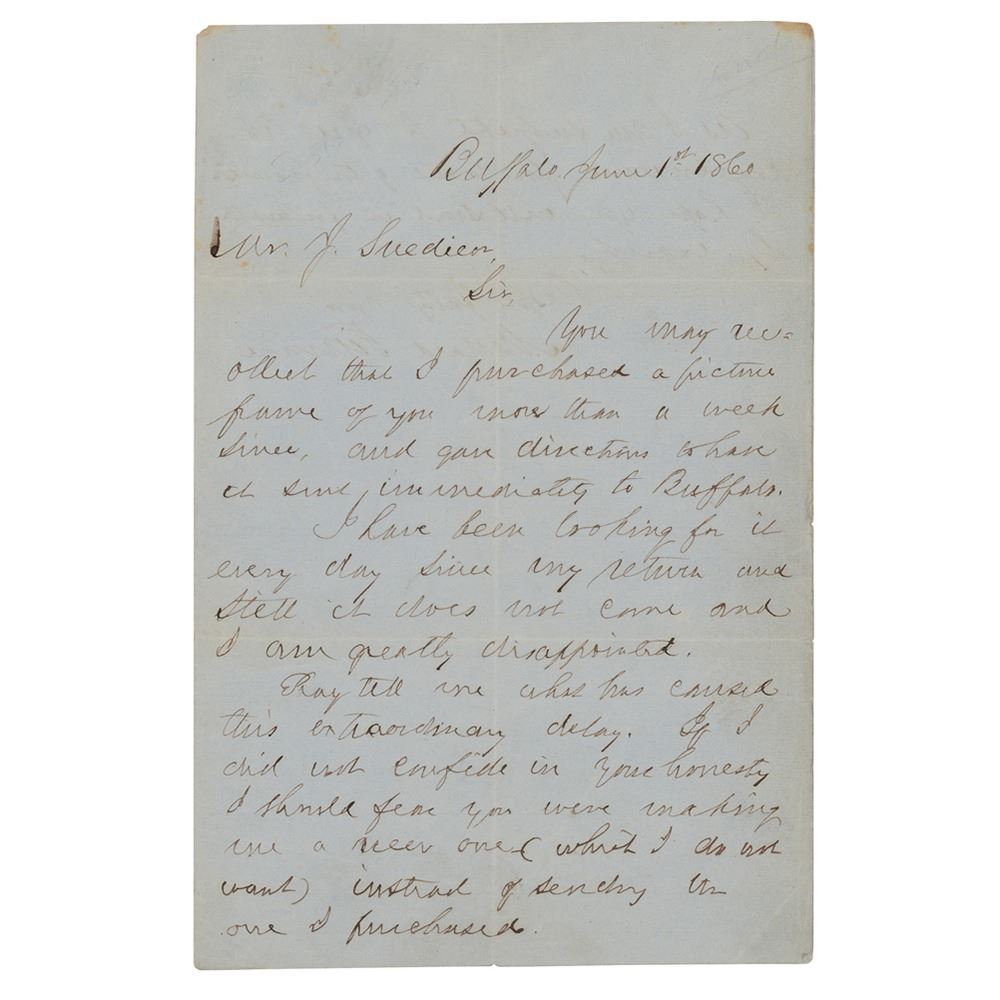 Buffalo June 1st 1860
Mr. J. Snedicor,
Sir,
You may rec=
ollect that I purchased a picture
frame of you more than a week
since, and gave directions to have
it sent immediately to Buffalo.
I have been looking for it
every day since my return and
still it does not come and
I am greatly disappointed.
Pray tell me what has caused
this extraordinary delay. If I
did not confide in your honesty
I should fear you were making
me a new one (which I do not
want) instead of sending the
one I purchased.